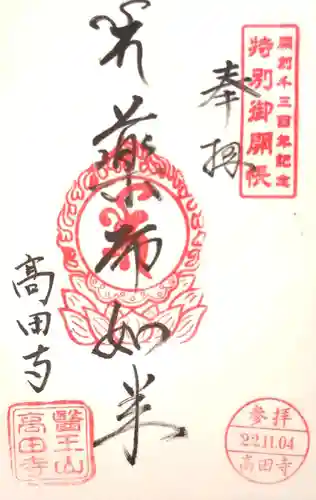 開創千三百年記念
特別御開帳
奉拝
薬師如来
高田寺
醫王山
高田寺
参拝
22.11.04
高田寺